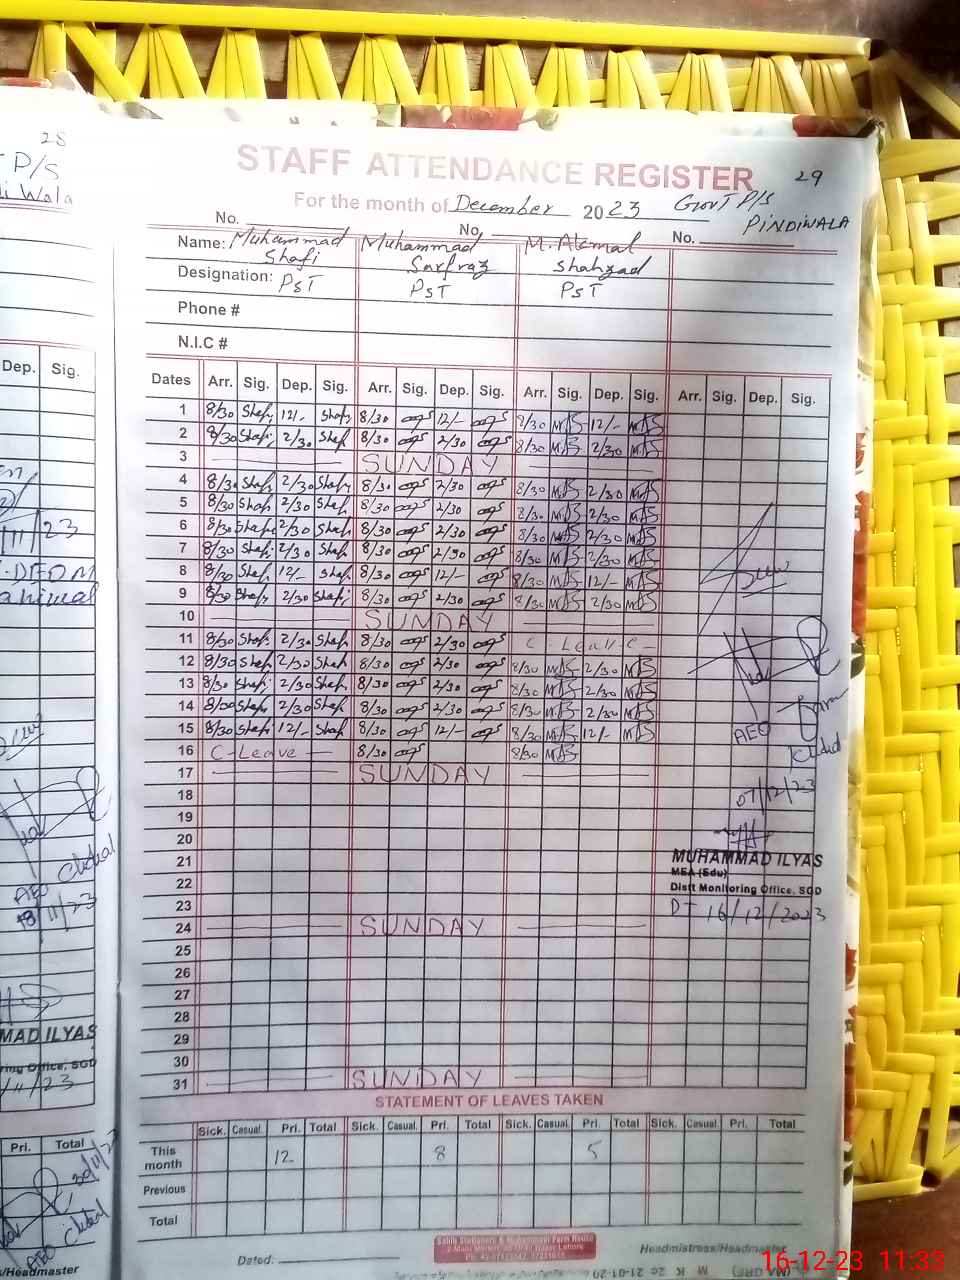 28
P/S
Wala
STAFF ATTENDANCE REGISTER 29
For the month of December 2023 Govt P/S
PINDIWALA
No. No. No.
Name: Muhammad Shafi Muhammad Sarfraz M. Akmal Shahzad
Designation: PST PST PST
Phone #
N.I.C #
Dates Arr. Sig. Dep. Sig. Arr. Sig. Dep. Sig. Arr. Sig. Dep. Sig. Arr. Sig. Dep. Sig.
1 8/30 Shafi 12/- Shafi 8/30 12/- 8/30 MAS 12/- MAS
2 8/30 Shafi 2/30 Shafi 8/30 2/30 8/30 MAS 2/30 MAS
3 SUNDAY
4 8/30 Shafi 2/30 Shafi 8/30 2/30 8/30 MAS 2/30 MAS
5 8/30 Shafi 2/30 Shafi 8/30 2/30 8/30 MAS 2/30 MAS
6 8/30 Shafi 2/30 Shafi 8/30 2/30 8/30 MAS 2/30 MAS
7 8/30 Shafi 2/30 Shafi 8/30 2/30 8/30 MAS 2/30 MAS
8 8/30 Shafi 12/- Shafi 8/30 12/- 8/30 MAS 12/- MAS
9 8/30 Shafi 2/30 Shafi 8/30 2/30 8/30 MAS 2/30 MAS
10 SUNDAY
11 8/30 Shafi 2/30 Shafi 8/30 2/30 C. Leave
12 8/30 Shafi 2/30 Shafi 8/30 2/30 8/30 MAS 2/30 MAS
13 8/30 Shafi 2/30 Shafi 8/30 2/30 8/30 MAS 2/30 MAS
14 8/30 Shafi 2/30 Shafi 8/30 2/30 8/30 MAS 2/30 MAS
15 8/30 Shafi 12/- Shafi 8/30 12/- 8/30 MAS 12/- MAS
16 C-Leave 8/30 8/30 MAS
17 SUNDAY
18
19
20
21
22
23
24 SUNDAY
25
26
27
28
29
30
31 SUNDAY
AEO
07/12/23
MUHAMMAD ILYAS
MEA (Edu)
Distt Monitoring Office, SGD
DT 16/12/2023
STATEMENT OF LEAVES TAKEN
Sick. Casual. Pri. Total Sick. Casual. Pri. Total Sick. Casual. Pri. Total Sick. Casual. Pri. Total
This month 12 8 5
Previous
Total
Dated:
Headmistress/Headmaster
Dep. Sig.
11/23
AEO
11/23
MAD ILYAS
ring Office, SGD
11/23
Pri. Total
AEO
s/Headmaster
16-12-23 11:33